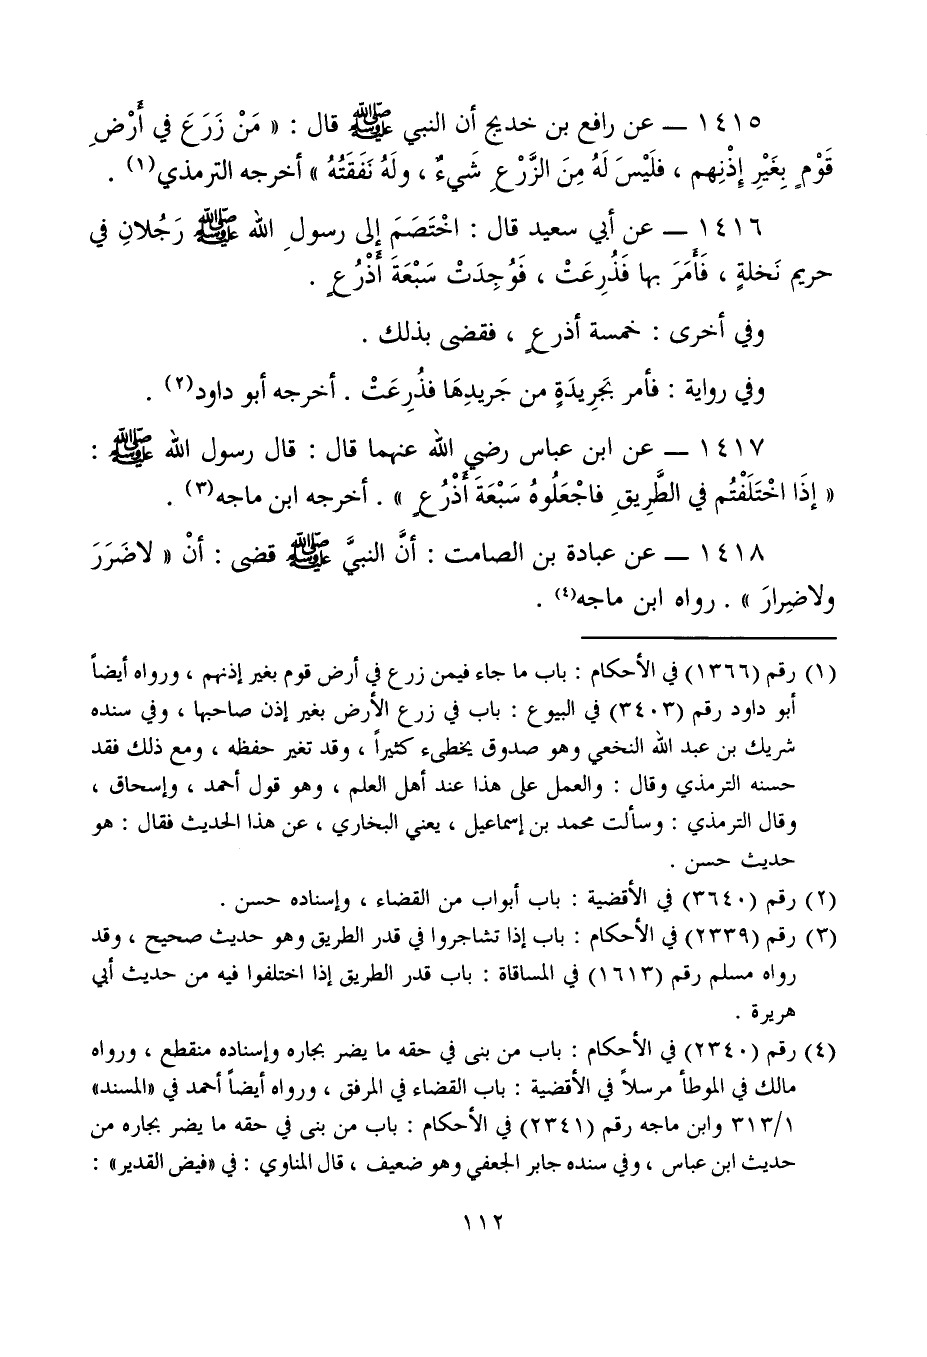 ١٤١٥ — عن رافع بن خديج أن النبي ﷺ قال : « مَنْ زَرَعَ في أَرْضِ
قَوْمٍ بِغَيْرِ إِذْنِهم ، فَلَيْسَ لَهُ مِنَ الزَّرْعِ شَيءٌ ، ولَهُ نَفَقَتُهُ » أخرجه الترمذي(١) .
١٤١٦ — عن أبي سعيد قال : اخْتَصَمَ إلى رسولِ الله ﷺ رَجُلانِ في
حريم نَخلةٍ ، فَأَمَرَ بها فَذُرِعَتْ ، فَوُجِدَتْ سَبْعَةَ أَذْرُعٍ .
وفي أخرى : خمسة أذرعٍ ، فقضى بذلك .
وفي رواية : فأمر بجَرِيدَةٍ من جَريدِهَا فذُرِعَتْ . أخرجه أبو داود(٢) .
١٤١٧ — عن ابن عباس رضي الله عنهما قال : قال رسول الله ﷺ :
« إذَا اخْتَلَفْتُم في الطَّرِيقِ فاجْعَلُوهُ سَبْعَةَ أَذْرُعٍ » . أخرجه ابن ماجه(٣) .
١٤١٨ — عن عبادة بن الصامت : أنَّ النبيَّ ﷺ قضى : أنْ « لاضَرَرَ
ولاضِرارَ » . رواه ابن ماجه(٤) .
(١) رقم (١٣٦٦) في الأحكام : باب ما جاء فيمن زرع في أرض قوم بغير إذنهم ، ورواه أيضاً
أبو داود رقم (٣٤٠٣) في البيوع : باب في زرع الأرض بغير إذن صاحبها ، وفي سنده
شريك بن عبد الله النخعي وهو صدوق يخطىء كثيراً ، وقد تغير حفظه ، ومع ذلك فقد
حسنه الترمذي وقال : والعمل على هذا عند أهل العلم ، وهو قول أحمد ، وإسحاق ،
وقال الترمذي : وسألت محمد بن إسماعيل ، يعني البخاري ، عن هذا الحديث فقال : هو
حديث حسن .
(٢) رقم (٣٦٤٠) في الأقضية : باب أبواب من القضاء ، وإسناده حسن .
(٣) رقم (٢٣٣٩) في الأحكام : باب إذا تشاجروا في قدر الطريق وهو حديث صحيح ، وقد
رواه مسلم رقم (١٦١٣) في المساقاة : باب قدر الطريق إذا اختلفوا فيه من حديث أبي
هريرة .
(٤) رقم (٢٣٤٠) في الأحكام : باب من بنى في حقه ما يضر بجاره وإسناده منقطع ، ورواه
مالك في الموطأ مرسلاً في الأقضية : باب القضاء في المرفق ، ورواه أيضاً أحمد في «المسند»
٣١٣/١ وابن ماجه رقم (٢٣٤١) في الأحكام : باب من بنى في حقه ما يضر بجاره من
حديث ابن عباس ، وفي سنده جابر الجعفي وهو ضعيف ، قال المناوي : في «فيض القدير» :
١١٢